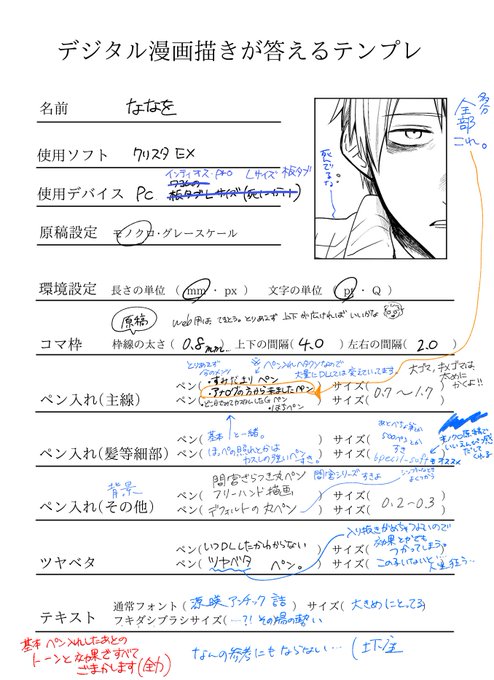 デジタル漫画描きが答えるテンプレ
名前 ななを
使用ソフト クリスタ EX
インティオス・pro Lサイズ 板タブ
使用デバイス PC
原稿設定 モノクロ・グレースケール
死んでるな
多分
全部
これ。
環境設定 長さの単位 ( mm ・ px ) 文字の単位 ( pt ・ Q )
原稿
web用は てきとう。とりあえず 上下が広ければいいかな
コマ枠 枠線の太さ ( 0.8mm… ) 上下の間隔( 4.0 ) 左右の間隔( 2.0 )
とりあえず
※ペン入れヘタクソなので
大量にDLしては変えています。
ペン入れ(主線) ペン( ・すみだまり ペン ) サイズ( 0.7〜1.7 )
・すずログの方から来ましたペン
・ぼちペン
大ゴマ、キメゴマは
太めに
かくよ!!
ペン入れ(髪等細部) ペン( 基本 と一緒。 ) サイズ( )
ペン( ほっぺの照れとかは カスレの強いペンすき。 ) サイズ( )
背景
ペン入れ(その他) ペン( 間宮ざらつき丸ペン フリーハンド描画 ) サイズ( )
間宮シリーズすきよ
ペン( デフォルトの丸ペン ) サイズ( 0.2〜0.3 )
ツヤベタ ペン( いつDLしたかわからない ) サイズ( )
ペン( ツヤベタ ペン。 ) サイズ( )
入り抜きがめちゃつよいので
効果とかでも
つかってしまう。
この子いないと…人生狂う…
テキスト 通常フォント ( 源暎アンチック 詰 ) サイズ( 大きめにとってる )
フキダシブラシサイズ ( …?! その場の勢い )
基本 ペン入れしたあとの
トーンと効果ですべて
ごまかします(全力)
なんの参考にもならない… (土下座